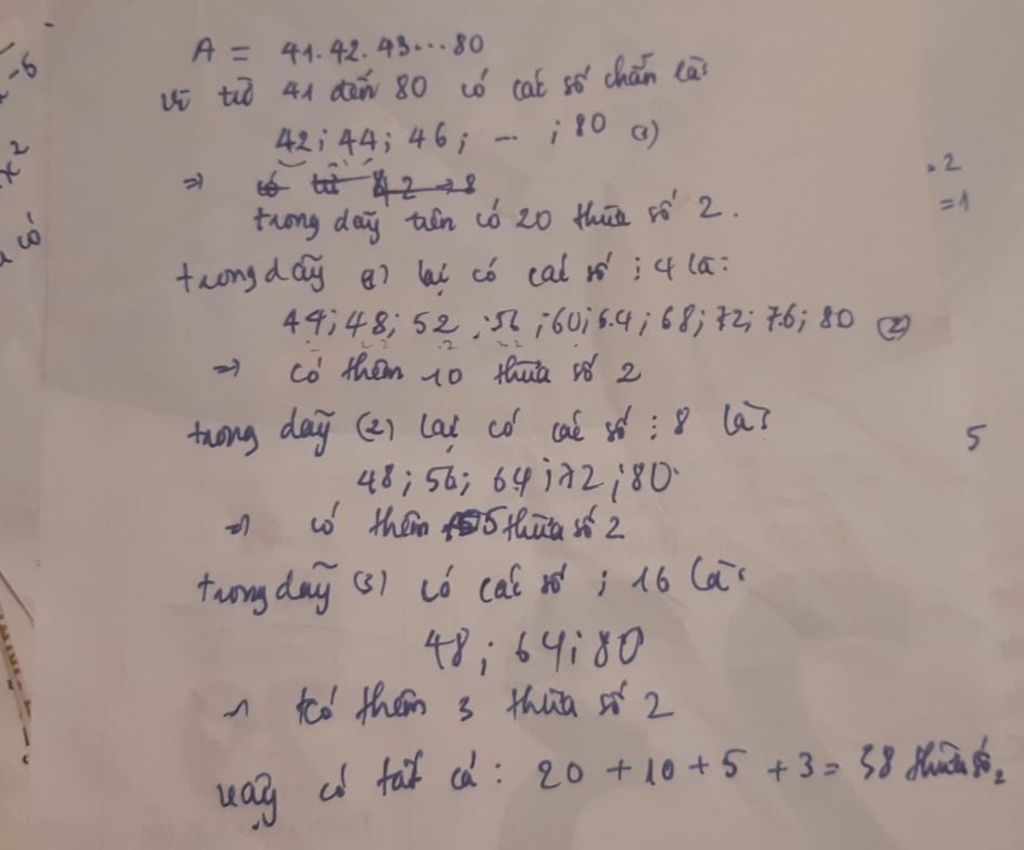 A = 41.42.43...80
Vì từ 41 đến 80 có các số chẵn là:
42; 44; 46; ... ; 80 (1)
=>
trong dãy trên có 20 thừa số 2.
trong dãy (1) lại có các số : 4 là:
44; 48; 52; 56; 60; 64; 68; 72; 76; 80 (2)
=> có thêm 10 thừa số 2
trong dãy (2) lại có các số : 8 là:
48; 56; 64; 72; 80.
=> có thêm 5 thừa số 2
trong dãy (3) có các số : 16 là:
48; 64; 80
có thêm 3 thừa số 2
vậy có tất cả: 20 + 10 + 5 + 3 = 38 thừa số 2
-6
x²
có
.2
=1
5